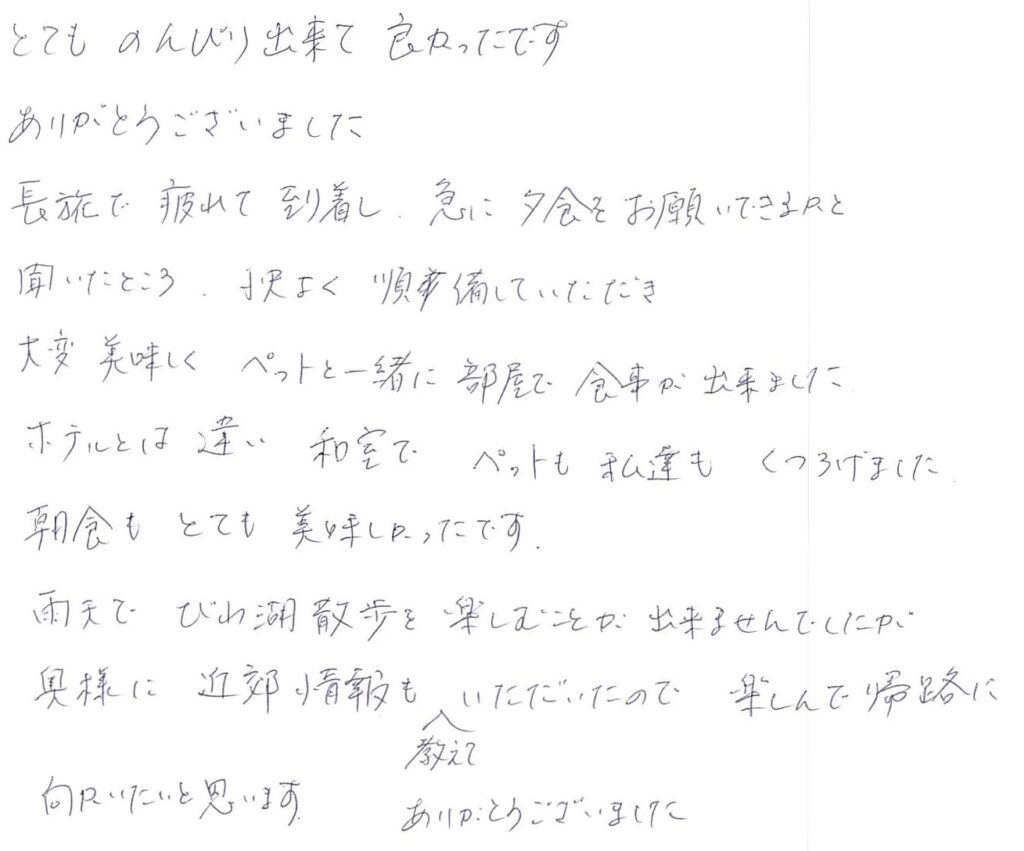 とても のんびり出来て 良かったです
ありがとうございました
長旅で 疲れて 到着し、急に 夕食を お願いできるかと
聞いたところ、快よく 準備していただき
大変 美味しく ペットと一緒に 部屋で 食事が 出来ました。
ホテルとは 違い 和室で ペットも 私達も くつろげました。
朝食も とても 美味しかったです。
雨天で びわ湖散歩を 楽しむことが 出来ませんでしたが
奥様に 近郊情報も 教えて いただいたので 楽しんで帰路に
向かいたいと思います。 ありがとうございました